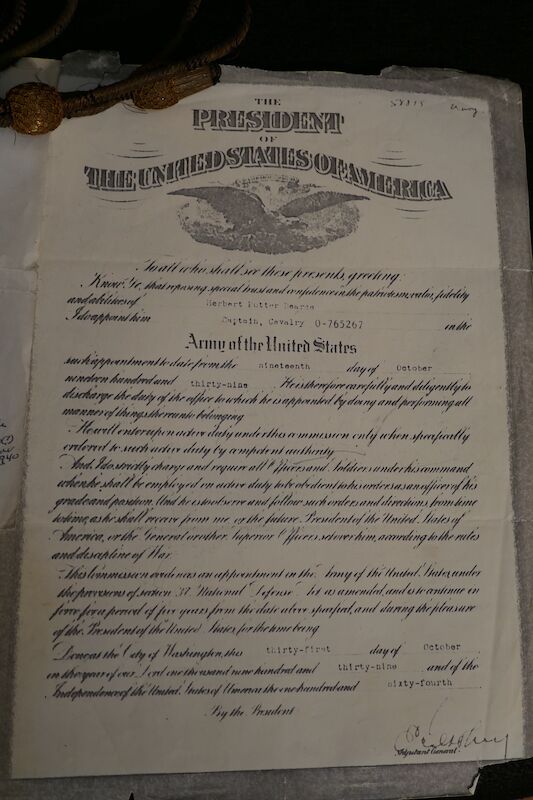 THE
PRESIDENT
OF
THE UNITED STATES OF AMERICA
To all who shall see these presents, greeting:
Know Ye, that reposing special trust and confidence in the patriotism, valor, fidelity
and abilities of Herbert Potter Dearse
I do appoint him Captain, Cavalry O-765267 in the
Army of the United States
such appointment to date from the nineteenth day of October
nineteen hundred and thirty-nine. He is therefore carefully and diligently to
discharge the duty of the office to which he is appointed by doing and performing all
manner of things thereunto belonging.
He will enter upon active duty under this commission only when specifically
ordered to such active duty by competent authority.
And I do strictly charge and require all Officers and Soldiers under his command
when he shall be employed on active duty to be obedient to his orders as an officer of his
grade and position. And he is to observe and follow such orders and directions, from time
to time, as he shall receive from me, or the future President of the United States of
America, or the General or other Superior Officers set over him, according to the rules
and discipline of War.
This Commission evidences an appointment in the Army of the United States, under
the provisions of section 37 National Defense Act as amended, and is to continue in
force for a period of five years from the date above specified, and during the pleasure
of the President of the United States, for the time being.
Done at the City of Washington, this thirty-first day of October
in the year of our Lord one thousand nine hundred and thirty-nine and of the
Independence of the United States of America the one hundred and sixty-fourth.
By the President
Adjutant General.
1940